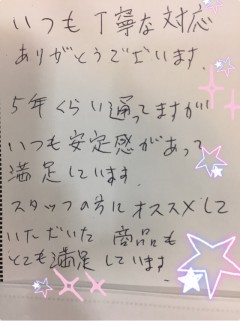 いつも丁寧な対応
ありがとうございます。
5年くらい通ってますが
いつも安定感があって
満足しています。
スタッフの方にオススメして
いただいた商品も
とても満足しています